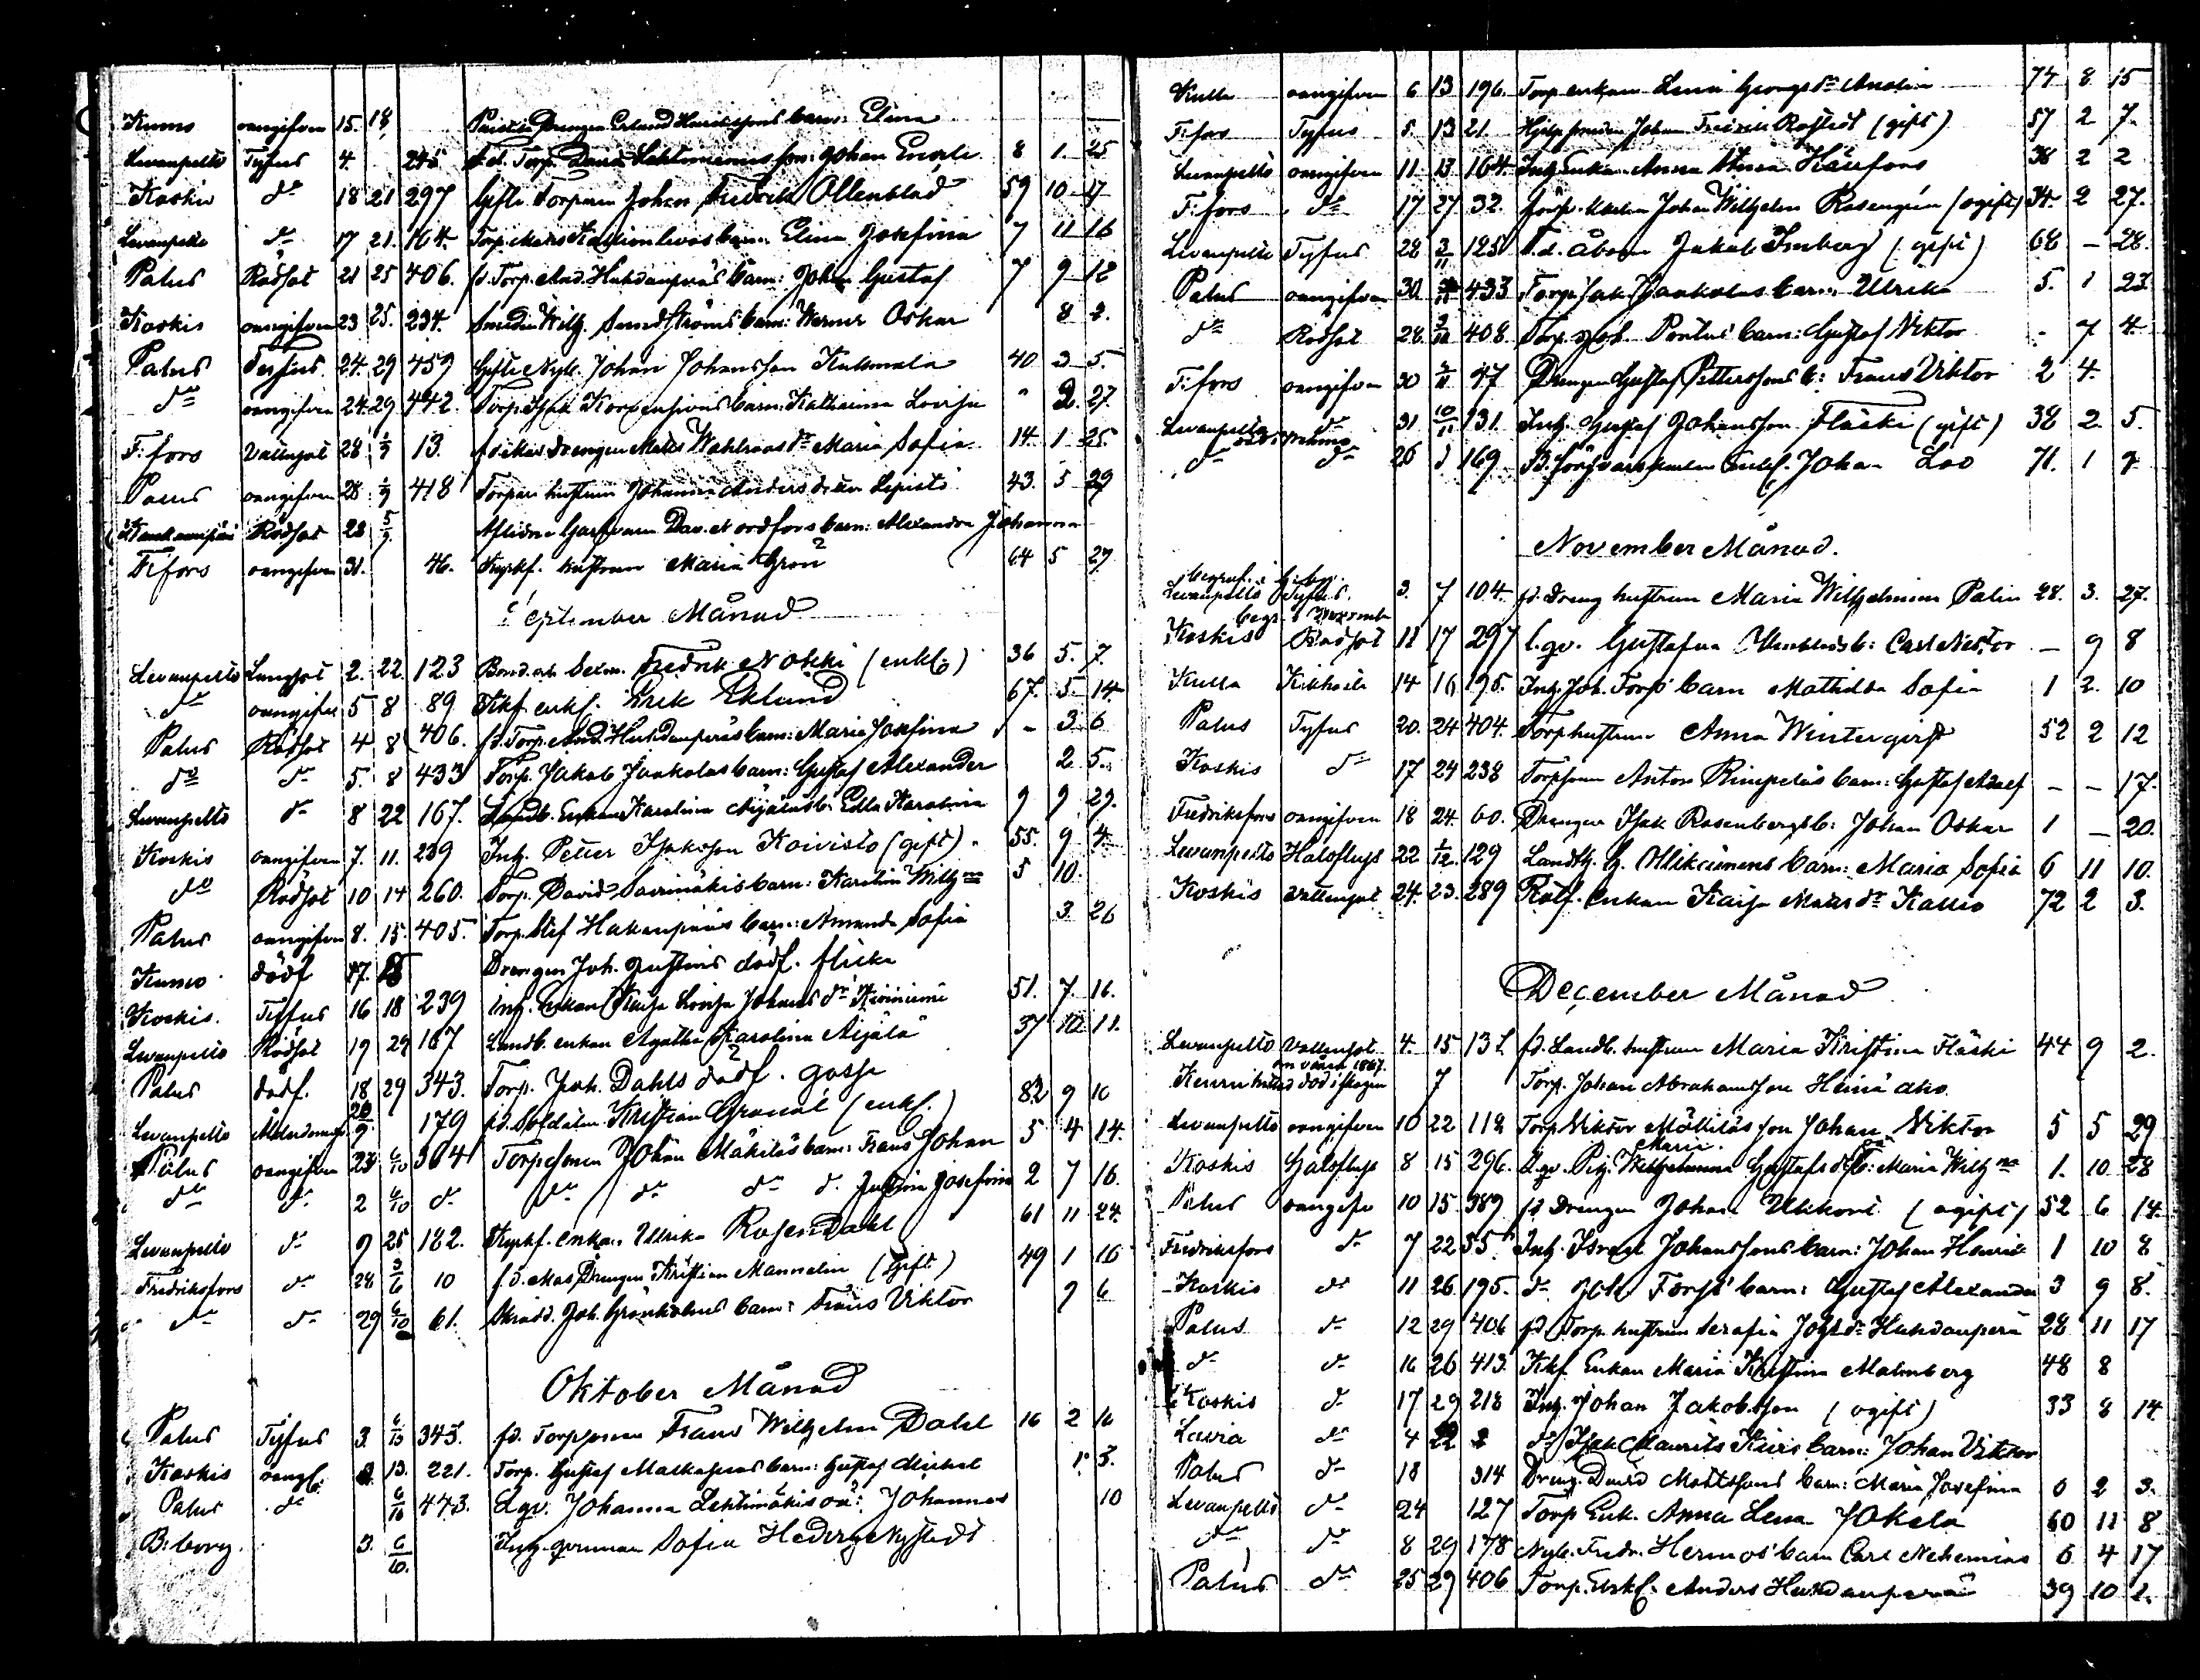 Kumo oangifven 15. 18 Erland barn: Elina
Levanpelto Tyfus 4. 245 f.d. Torp. David son: Johan Enok 8 1 25
Koskis do 18 21 297 Gifte Torparen Johan Fredrik Ollenblad 59 10 17
Levanpelto do 17 21 164 Torp. Mats barn: Elina Josefina 7 11 16
Palus Rödsot 21 25 406. fd. Torp. And. Huhdanpääs barn: Johan Gustaf 7 9 12
Koskis oangifven 23 25. 234. Smeden Wilh. Sundströms barn: Werner Oskar 8 2.
Palus Tyfus 24. 29 459 Gifte Nyb. Johan Johansson 40 3 5.
do oangifven 24. 29 442. Torp. Isak Korpensivus barn: Katharina Lovisa " 2. 27.
F:fors Vattusot 28 1/9 13. Mats dr Maria Sofia 14. 1 25
Palus oangifven 28 1/9 418 Torpare hustrun Johanna Anders dr 43. 5 29
Rödsot 28 5/9 Aflidne Dav. Nordfors barn: Alexandra Johanna
F:fors oangifven 31. 46. Kyrkf. hustrun Maria Grön 64 5 27
September Månad
Levanpelto Lungsot 2. 22. 123 Fredrik Nokki (enkl.) 36 5. 7.
do oangifven 5 8 89 Kkf. enkl. Erik Eklund 67. 5 14
Palus Rödsot 4 8 406. fd. Torp. And. Huhdanpääs barn: Maria Josefina - 3 6
do do 5. 8 433 Torp. Jakob Jaakolas barn: Gustaf Alexander 2 5.
Levanpelto do 8 22 167. Landb. Enkan Karolina Äijäläs b: Edla Karolina 9 9 29.
Koskis oangifven 7. 11. 239 Inh. Petter Isaksson Koivisto (gift). 55. 9 4
do Rödsot 10 14 260. Torp. David Savimäkis barn: Karolina Wilhna 5 10.
Palus oangifven 8. 15. 405. Torp. barn: Amanda Sofia 3. 26
Kumo dödf 17. 18 Drengen Joh. dödf. flicka
Koskis. Tyffus 16 18 239 Inh. Enkan Kaisa Lovisa Johans dr Kiviniemi 51. 7. 16.
Levanpelto Rödsot 19 29 167 Landb. enkan Agatha Karolina Äijälä 37 10 11.
Palus dödf. 18 29 343. Torp. Joh. Dahls dödf. gosse
Levanpelto 20/9 179 fd. Soldaten Kristian Granat (enkl.) 82 9 10
Palus oangifven 23 6/10 364 Torpesonen Johan Mäkiläs barn: Frans Johan 5 4 14.
do do 2 6/10 do do do do do Justina Josefina 2 7 16.
Levanpelto do 9 25 182. Kyrkf. enkan Ulrika Rosendahl 61 11 24.
Fredriksfors do 28 10 f.d. Mas. Drengen Kristian Mannelin (gift) 49 1 16
do do 29 6/10 61. Skrädd. Joh. Grönholms barn: Frans Viktor 9 6
Oktober Månad
Palus Tyfus 3. 6/10 343. fd. Torpsonen Frans Wilhelm Dahl 16 2 16
Koskis oangf. 13. 221. Torp. Gustaf barn: Gustaf Mickel 1. 3.
Palus do 6/10 473. Lgv. Johanna Lehtimäkis oä: Johannes 10
B:borg. 3. 6/10. Sofia
Kulla oangifven 6 13 196. Torp. enkan Lena Georgs dr 74 8 15
F:fors Tyfus 5 13 21. Johan Fredrik (gift) 57 2 7.
Levanpelto oangifven 11. 13 164. Inh. Enkan Anna 38 2 2
F:fors do 17 27 32. Johan Wilhelm Rosengrén (ogift) 34. 2 27.
Levanpelto Tyfus 28 3/11 125 F.d. Åboen Jakob (gift) 68 - 28.
Palus oangifven 30 433 Torp. Jak. Jaakolas barn: Ulrika 5. 1 23
do Rödsot 28 408. Torp. Joh. barn: Gustaf Viktor - 7 4
F:fors oangifven 30 47 Drengen Gustaf Petterssons b: Frans Viktor 2 4.
Levanpelto do 31 10/11 131. Inh. Gustaf Johansson Fläski (gift) 38 2. 5.
do do 26 169. enkl. Johan Loo 71. 1 7
November Månad.
Levanpelto Tyfus. 3. 7 104. fd. Dreng hustrun Maria Wilhelmina Palin 28. 3. 27.
Koskis Rödsot 11 17 297 Lgv. Gustafva b: Carl Nestor - 9 8
Kulla Kikhosta 14 16 195. Inh. Joh. Forss' barn Mathilda Sofia 1 2. 10
Palus Tyfus 20. 24 404. Torphustrun Anna Wintergirst 52 2 12
Koskis do 17 24 238 Torpsonen Anton Rimpeläs barn: Gustaf Adolf - - 17.
Fredriksfors oangifven 18 24. 60. Drengen Isak Rosenbergs b: Johan Oskar 1 - 20.
Levanpelto Halsfluss 22 1/12 129 Landb. G. Ollikainens barn: Maria Sofia 6 11 10.
Koskis Vattusot 24. 23. 289 Rotf. Enkan Kaisa Mats dr Kallio 72 2 3.
December Månad
Levanpelto Vattusot 4. 15 132 fd. Landb. hustrun Maria Kristina Fläski 44 9 2.
död i skogen 7 Torp. Johan Abrahamsson Heinäaho.
Levanpelto oangifven 10 22 118 Torp. Viktor Möttiläs son Johan Viktor 5 5 29
Maria
Koskis Halsfluss 8 15 296. Lgv. Pig. Wilhelmina Gustafs dr b: Maria Wilhna 1. 10. 28
Palus oangifv 10 15 389 fd. Drengen Johan Ukkoni (ogift) 52 6 14.
Fredriksfors do 7 22 55 Inh. Israel Johanssons barn: Johan Henrik 1 10 8
Koskis do 11 26 195. do Joh. Forss' barn: Gustaf Alexander 3 9 8.
Palus do 12 29 406 fd. Torp. hustrun Serafia Johs dr Huhdanperä 28 11 17
do do 16 26 413 Kkf. Enkan Maria Kristina Malmberg 48 8
Koskis do 17 29 218 Inh. Johan Jakobsson (ogift) 33 8 14
Lavia do 4 22 2 do Isak Maurits barn: Johan Viktor
Palus do 18 314 Dreng. David Mattssons barn: Maria Josefina 0 2 3.
Levanpelto do 24 127 Torp. Enk. Anna Lena Jokela 60 11 8
do do 8 29 178 Nyb. Fredr. Hermos' barn Carl Nehemias 6 4 17
Palus do 25 29 406 Torp. Enkl. Anders Huhdanperä 39 10 1.